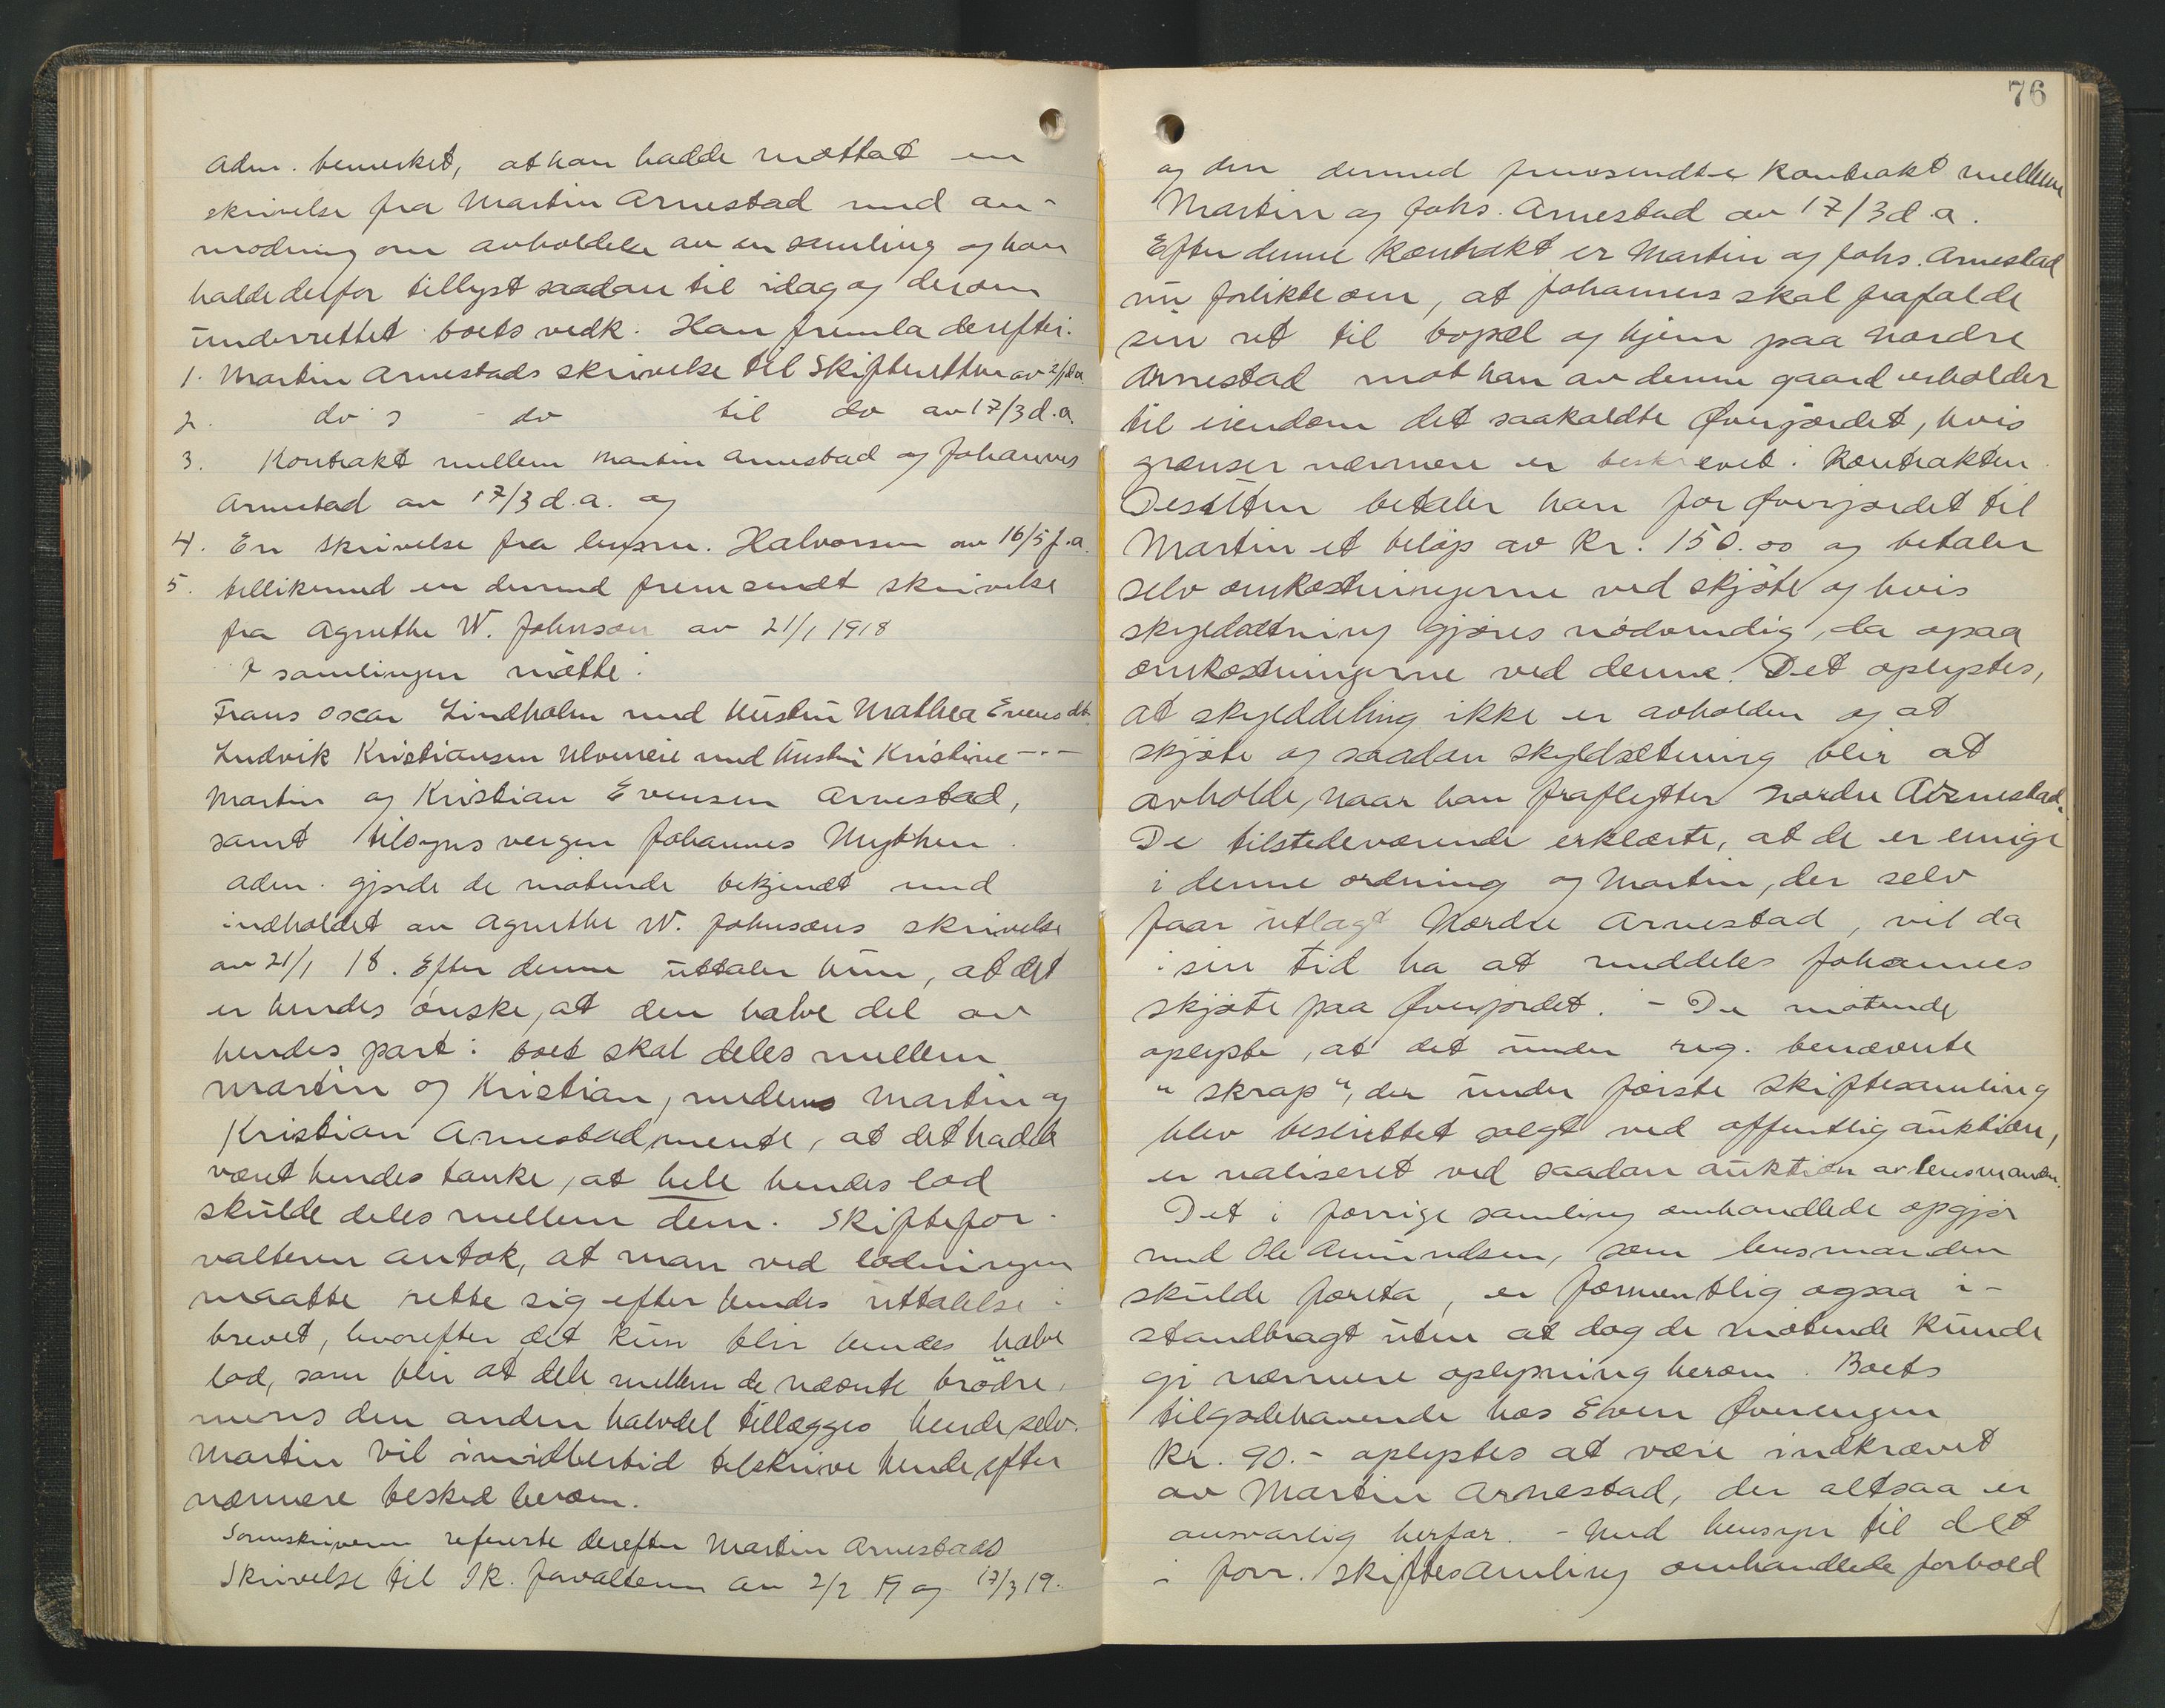 Adm. bemerket, at han hadde mottat en
skrivelse fra Martin Arnestad med an-
modning om avholdelse av en samling og han
hadde derfor tillyst saadan til idag og derom
underrettet boets vedk. Han fremla derefter:
1. Martin Arnestads skrivelse til Skifteretten av 2/2 d.a.
2. do's - do til do av 17/3 d.a.
3. Kontrakt mellem Martin Arnestad og Johannes
Arnestad av 17/3 d.a. og
4. En skrivelse fra lensm. Halvorsen av 16/5 f.a.
5. tillikemed en dermed fremsendt skrivelse
fra Agnethe W. Johnson av 21/1 1918
I samlingen møtte:
Frans Oscar Lindholm med hustru Mathea Evensdt.
Ludvik Kristiansen Ulveneie med hustru Kristine -"-
Martin og Kristian Evensen Arnestad,
samt tilsynsvergen Johannes Mythen.
Adm. gjorde de møtende bekjendt med
indholdet av Agnethe W. Johnsons skrivelse
av 21/1 18. Efter denne uttaler hun, at det
er hendes ønske, at den halve del av
hendes part i boet skal deles mellem
Martin og Kristian, medens Martin og
Kristian Arnestad mente, at det hadde
været hendes tanke, at hele hendes lod
skulde deles mellem dem. Skiftefor-
valteren antok, at man ved lodningen
maatte rette sig efter hendes uttalelse i
brevet, hvorefter det kun blir hendes halve
lod, som blir at dele mellem de nævnte brødre,
mens den anden halvdel tillægges hende selv.
Martin vil imidlertid tilskrive hende efter
nærmere besked herom.
Sorenskriveren refererte derefter Martin Arnestads
Skrivelse til Sk. forvalteren av 2/2 19 og 17/3 19.
76
og den dermed fremsendte kontrakt mellem
Martin og Johs. Arnestad av 17/3 d.a.
Efter denne kontrakt er Martin og Johs. Arnestad
nu forlikte om, at Johannes skal frafalde
sin ret til bopæl og hjem paa nordre
Arnestad mot han av denne gaard erholder
til eiendom det saakaldte Øverjordet, hvis
grænser nærmere er beskrevet i kontrakten.
Desuten betaler han for Øverjordet til
Martin et beløp av kr. 150.00 og betaler
selv omkostningerne ved skjøte og hvis
skyldsætning gjøres nødvendig, da ogsaa
omkostningerne ved denne. Det oplystes,
at skylddeling ikke er avholden og at
skjøte og saadan skyldsætning blir at
avholde, naar han fraflytter nordre Arnestad.
De tilstedeværende erklærte, at de er enige
i denne ordning og Martin, der selv
faar utlagt Nordre Arnestad, vil da
i sin tid ha at meddeles Johannes
skjøte paa Øverjordet. - De møtende
oplyste, at det under reg. benævnte
"skrap", der under første skiftesamling
blev besluttet solgt ved offentlig auktion,
er realiseret ved saadan auktion av lensmanden.
Det i forrige samling omhandlede opgjør
med Ole Amundsen, som lensmanden
skulde foreta, er formentlig ogsaa i-
standbragt uten at dog de møtende kunde
gi nærmere oplysning herom. Boets
tilgodehavende hos Even Øverengen
kr. 90.- oplystes at være indkrævet
av Martin Arnestad, der altsaa er
ansvarlig herfor. - Med hensyn til det
i forr. skiftesamling omhandlede forhold